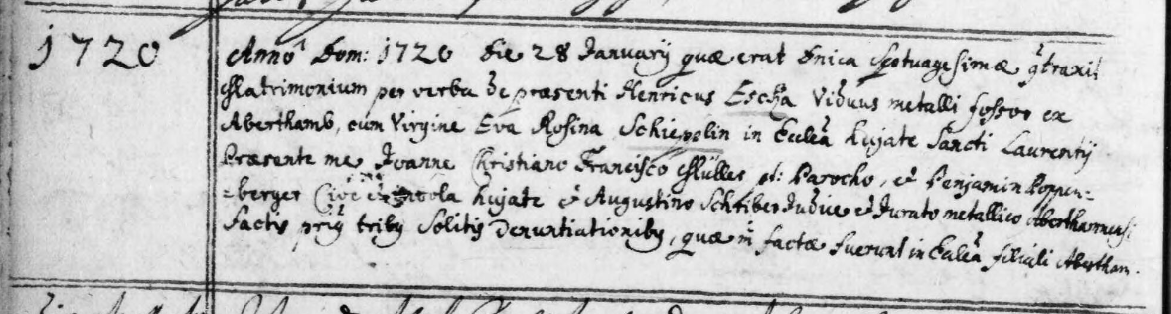 1720
Anno Dom: 1720 die 28 Januarÿ quæ erat Dnica Septuagesimæ gtraxit
Matrimonium per verba de præsenti Henricus Escha Viduus metalli fossor ex
Aberthamb, cum Virgine Eva Rosina Schiepolin in Eccleā hujate Sancti Laurentÿ
Præsente me Joanne Christiano Francisco Müller p: Parocho, et Benjamin Poppen-
-berger Cive et Incola hujate et Augustino Schriber Judice et Jurato metallico Aberthamensi
Factis priq tribq Solitis Denuntiationibq, quæ in factæ fuerunt in Eccleā filiali Abertham.